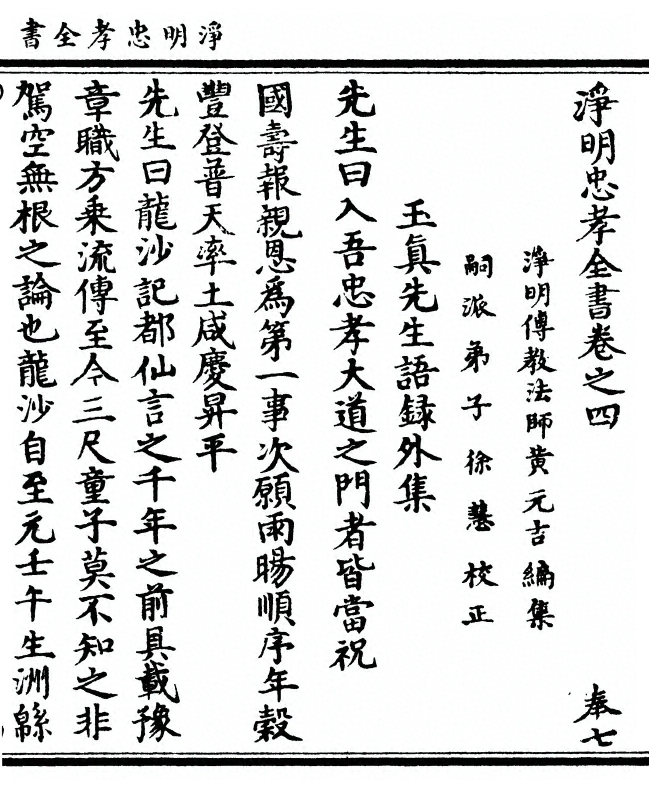 淨明忠孝全書
淨明忠孝全書卷之四
奉七
淨明傳教法師黄元吉編集
嗣派弟子徐慧校正
玉眞先生語録外集
先生曰入吾忠孝大道之門者皆當祝
國壽報親恩爲第一事次願雨暘順序年穀
豐登普天率土咸慶昇平
先生曰龍沙記都仙言之千年之前具載豫
章職方乘流傳至今三尺童子莫不知之非
駕空無根之論也龍沙自至元壬午生洲緜